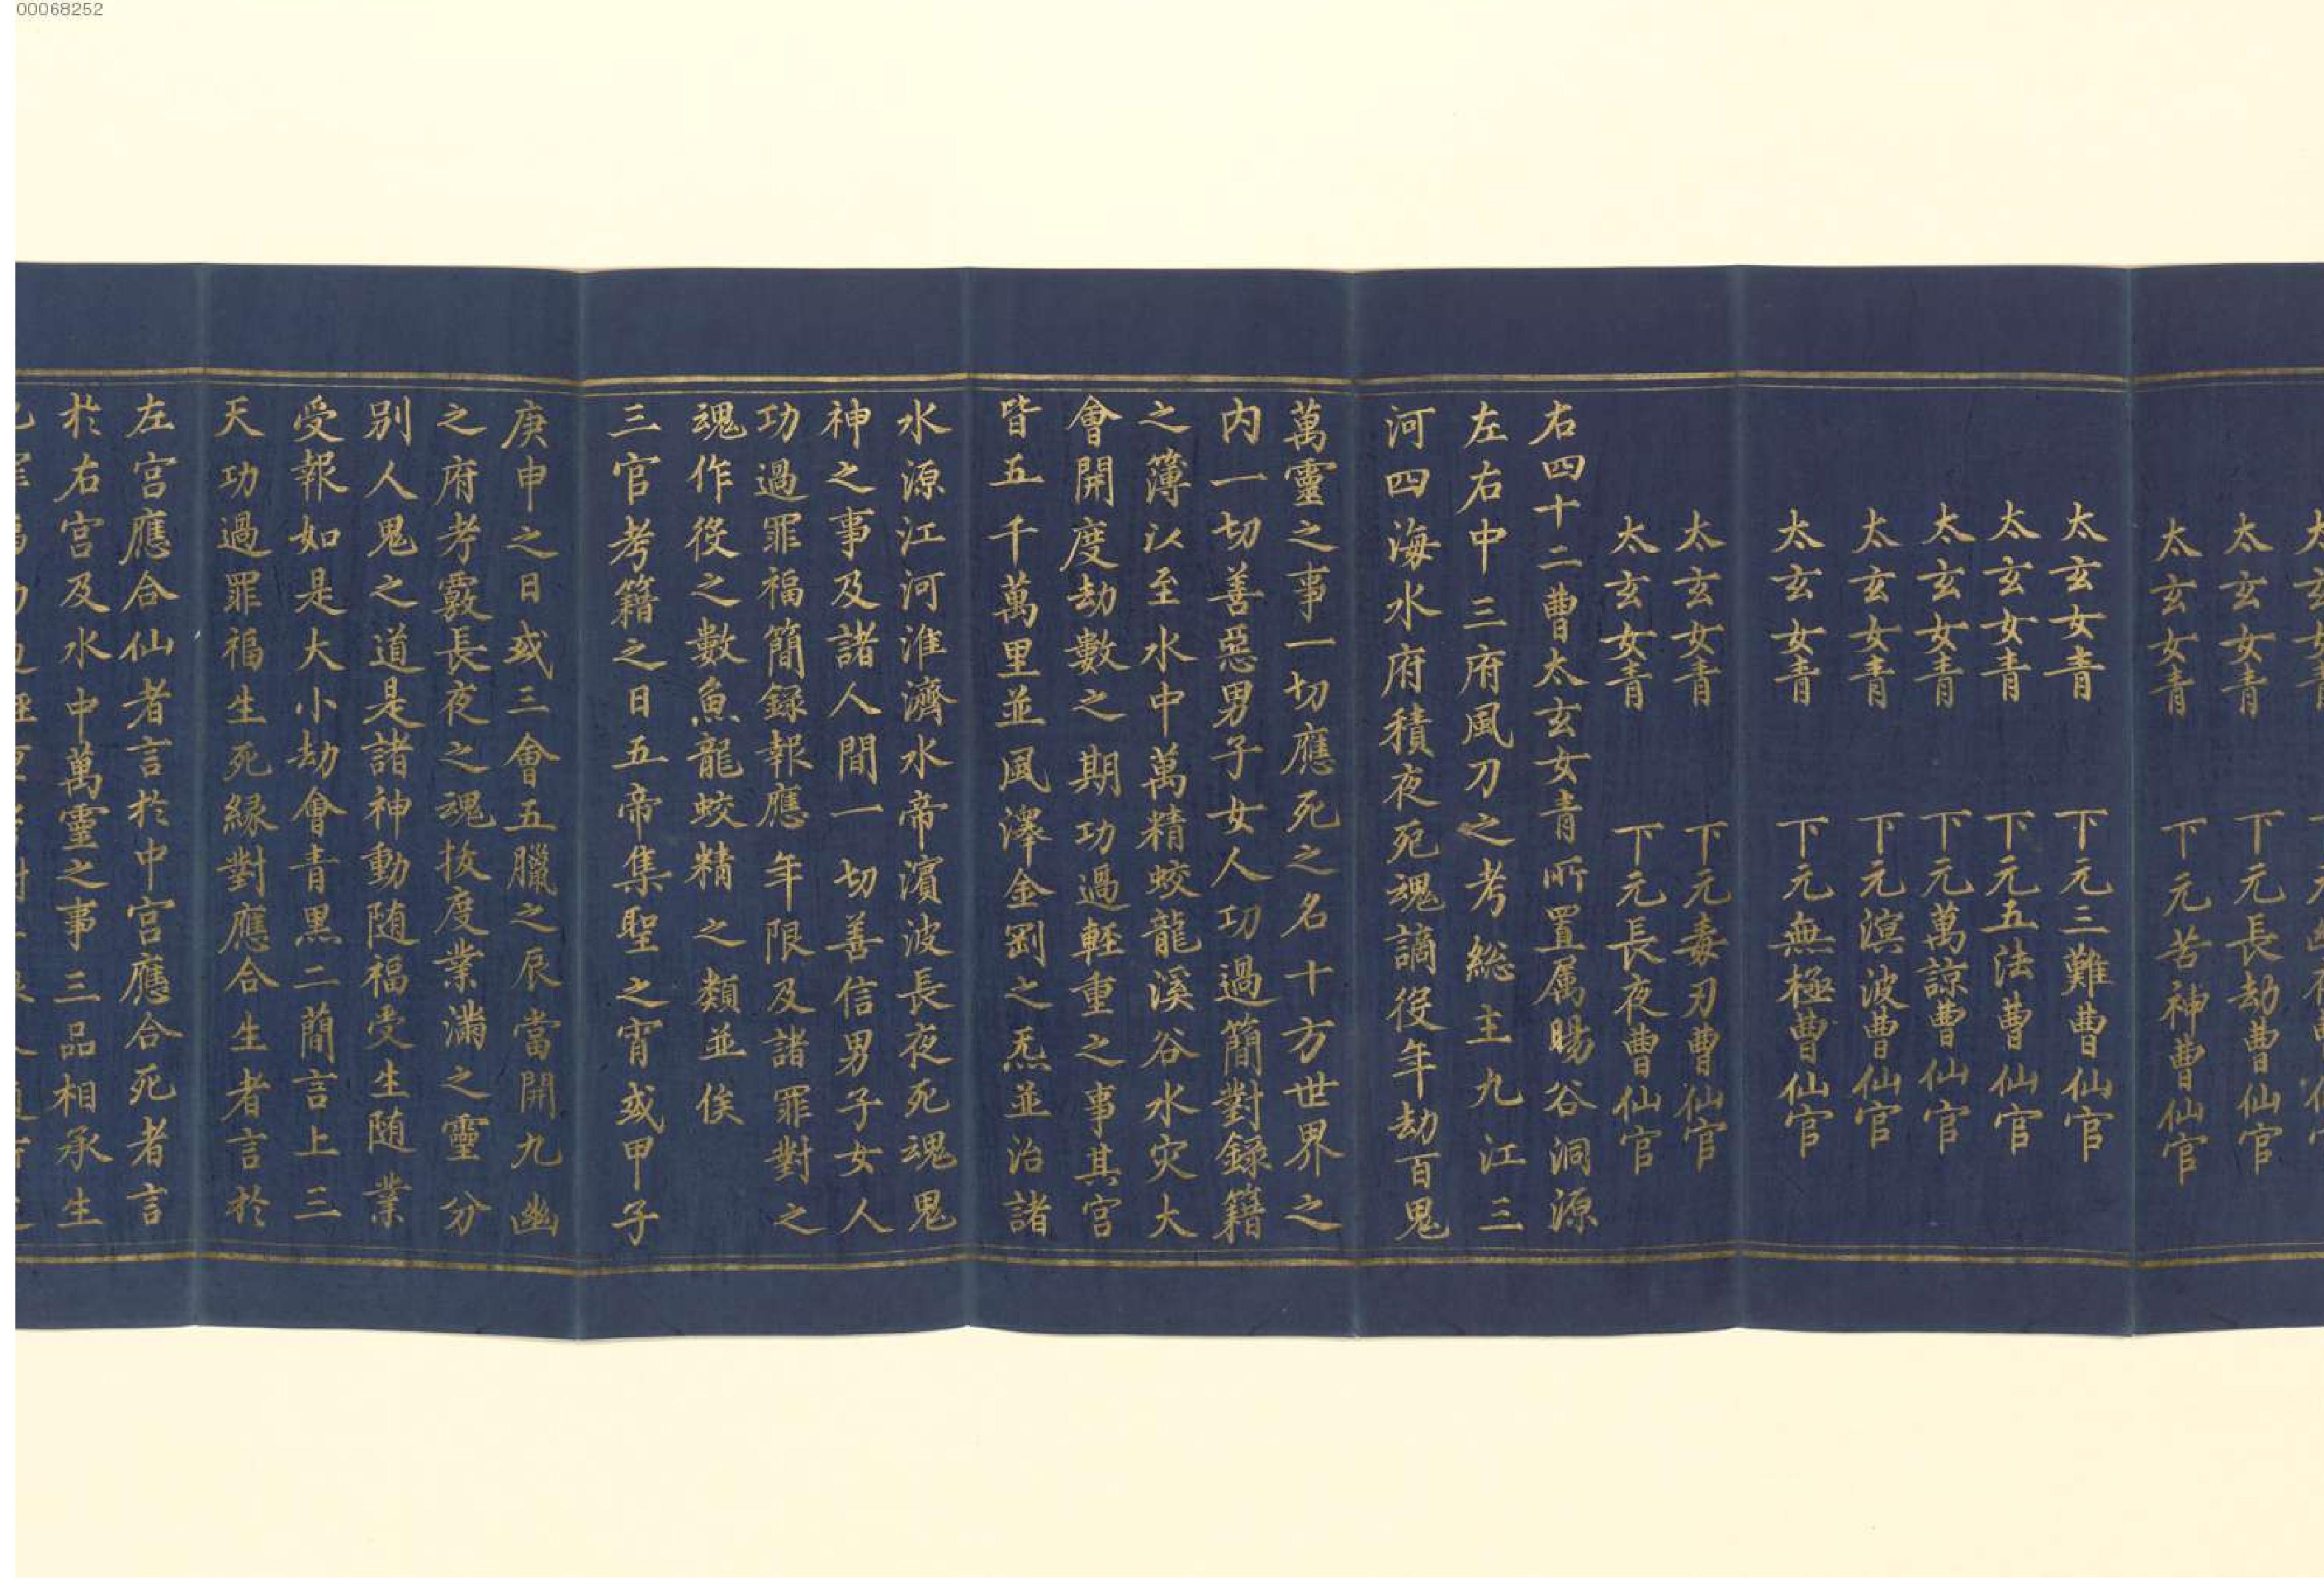 00068252
太玄女青　下元長劫曹仙官
太玄女青　下元苦神曹仙官
太玄女青　下元三難曹仙官
太玄女青　下元五法曹仙官
太玄女青　下元萬諒曹仙官
太玄女青　下元溟波曹仙官
太玄女青　下元無極曹仙官
太玄女青　下元毒刃曹仙官
太玄女青　下元長夜曹仙官
右四十二曹太玄女青所置属暘谷洞源
左右中三府風刀之考総主九江三
河四海水府積夜死魂謫役年劫百鬼
萬靈之事一切應死之名十方世界之
内一切善惡男子女人功過簡對録籍
之簿以至水中萬精蛟龍溪谷水灾大
會開度劫數之期功過輕重之事其宫
皆五千萬里並風澤金剛之炁並治諸
水源江河淮濟水帝濵波長夜死魂鬼
神之事及諸人間一切善信男子女人
功過罪福簡録報應年限及諸罪對之
魂作役之數魚龍蛟精之類並俟
三官考籍之日五帝集聖之宵或甲子
庚申之日或三會五臘之辰當開九幽
之府考覈長夜之魂拔度業滿之靈分
别人鬼之道是諸神動随福受生随業
受報如是大小劫會青黒二簡言上三
天功過罪福生死緣對應合生者言於
左宫應合仙者言於中宫應合死者言
於右宫及水中萬靈之事三品相承生